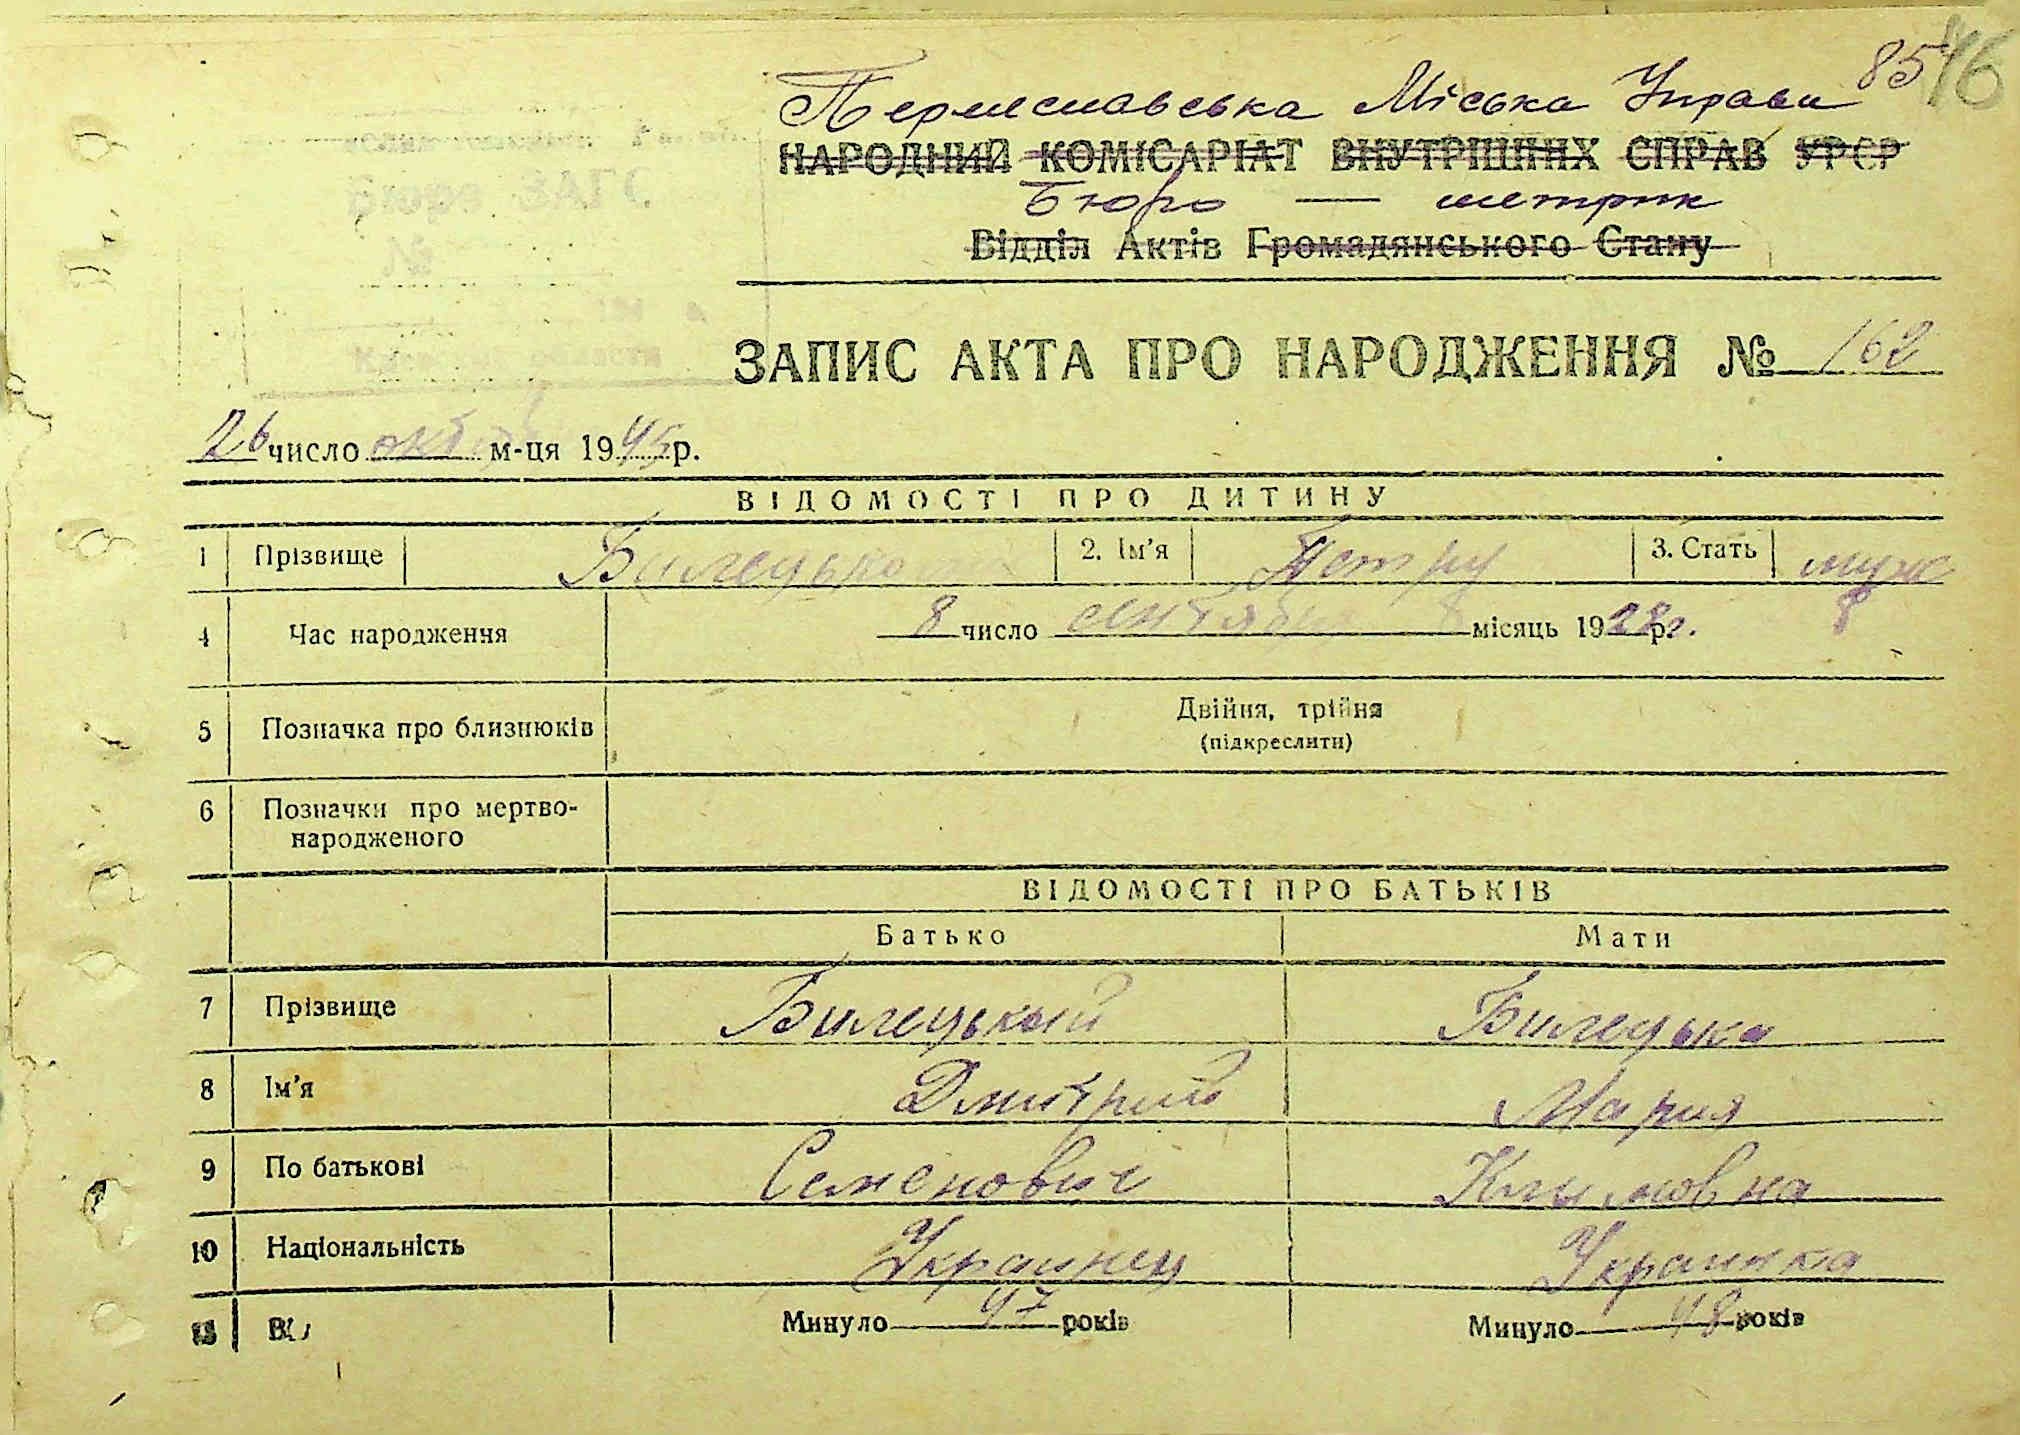 85 46
Переяславська Міська Управа
НАРОДНИЙ КОМІСАРІАТ ВНУТРІШНІХ СПРАВ УРСР
Бюро — метрик
Відділ Актів Громадянського Стану
Бюро ЗАГС
№
ЗАПИС АКТА ПРО НАРОДЖЕННЯ № 162
26 число м-ця 1945 р.
ВІДОМОСТІ ПРО ДИТИНУ
1 Прізвище 2. Ім'я Петру 3. Стать муж
4 Час народження 8 число сентября місяць 1928 р. 8
5 Позначка про близнюків Двійня, трійня
(підкреслити)
6 Позначки про мертво-
народженого
ВІДОМОСТІ ПРО БАТЬКІВ
Батько Мати
7 Прізвище Билецький Билецька
8 Ім'я Дмитрий Мария
9 По батькові Семенович Климовна
10 Національність Украинец Украинка
Минуло 47 років Минуло 48 років